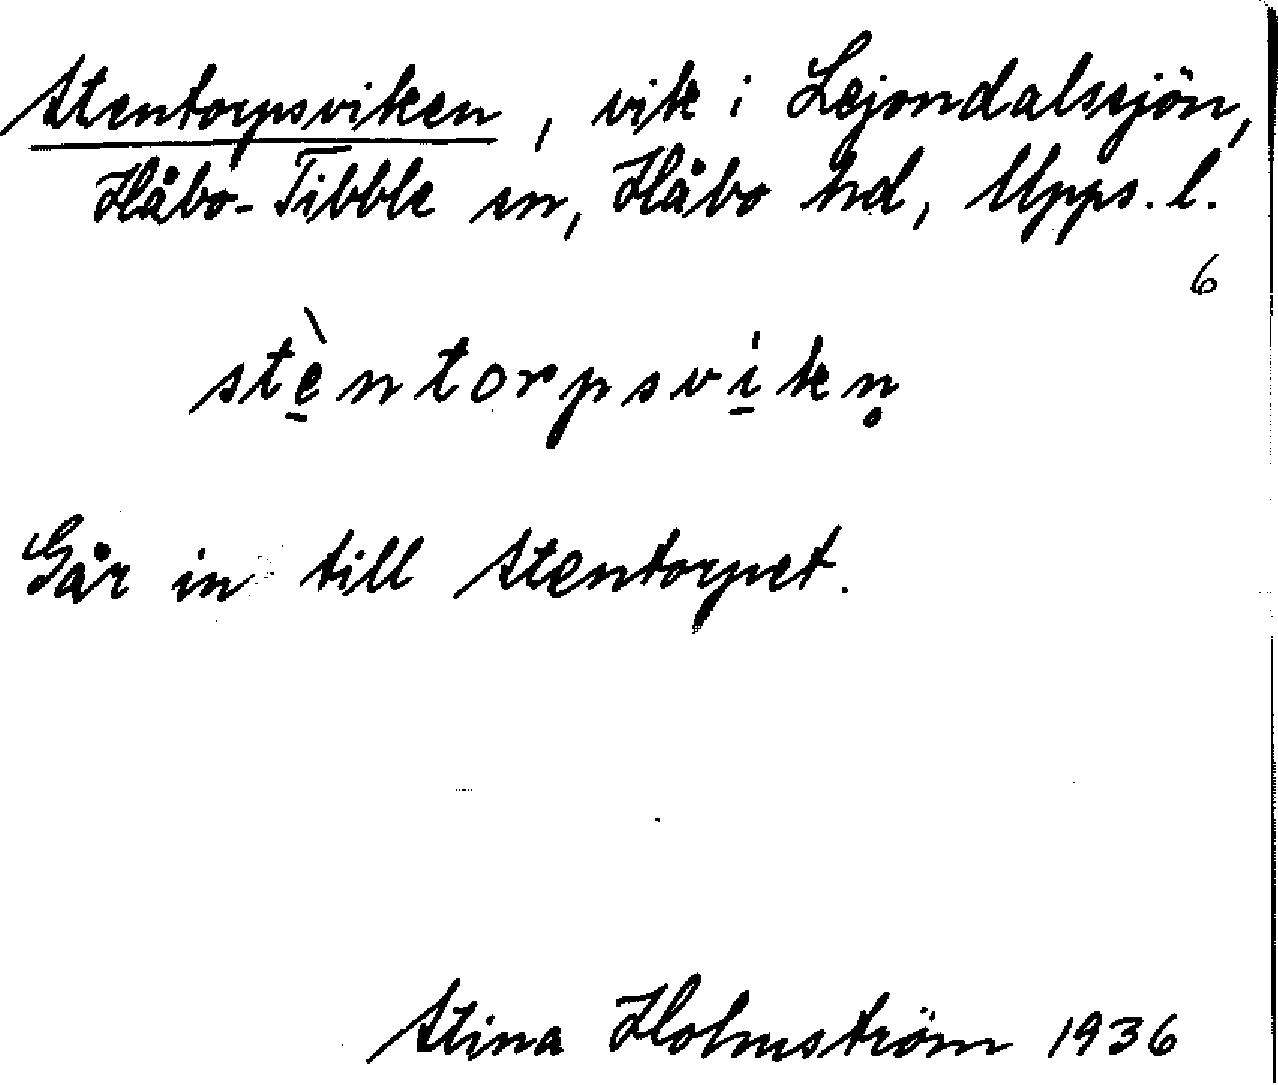 Stentorpsviken, vik i Lejondalssjön,
Håbo-Tibble sn, Håbo hd, Upps. l.
6
stè̱ntorpsvi̱kn̥
Går in till Stentorpet.
Stina Holmström 1936